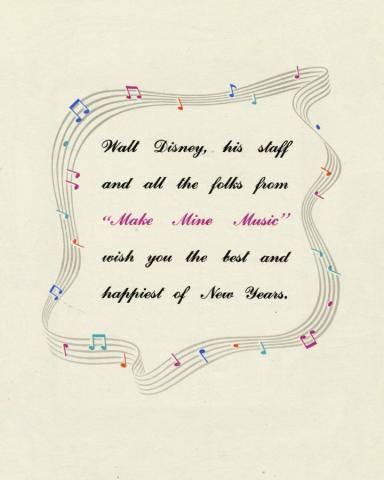 Walt Disney, his staff
and all the folks from
“Make Mine Music”
wish you the best and
happiest of New Years.